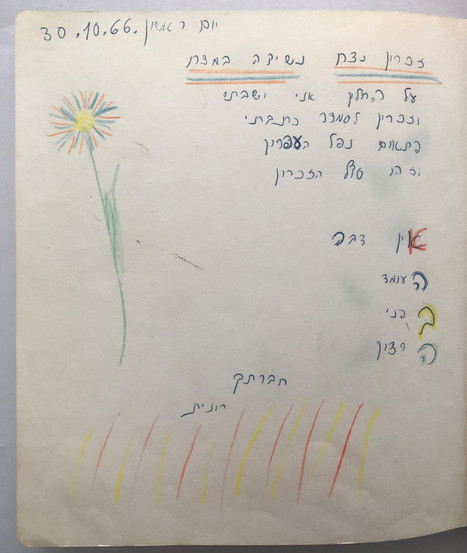 יום ראשון 30.10.66.
זכרון נצח נשיקה במצח
על החלון אני ישבתי
וזכרון לסמדר כתבתי
פתאום נפל העפרון
וזהו סוף הזכרון
אין דבר
העומד
בפני
הרצון
חברתך
רונית